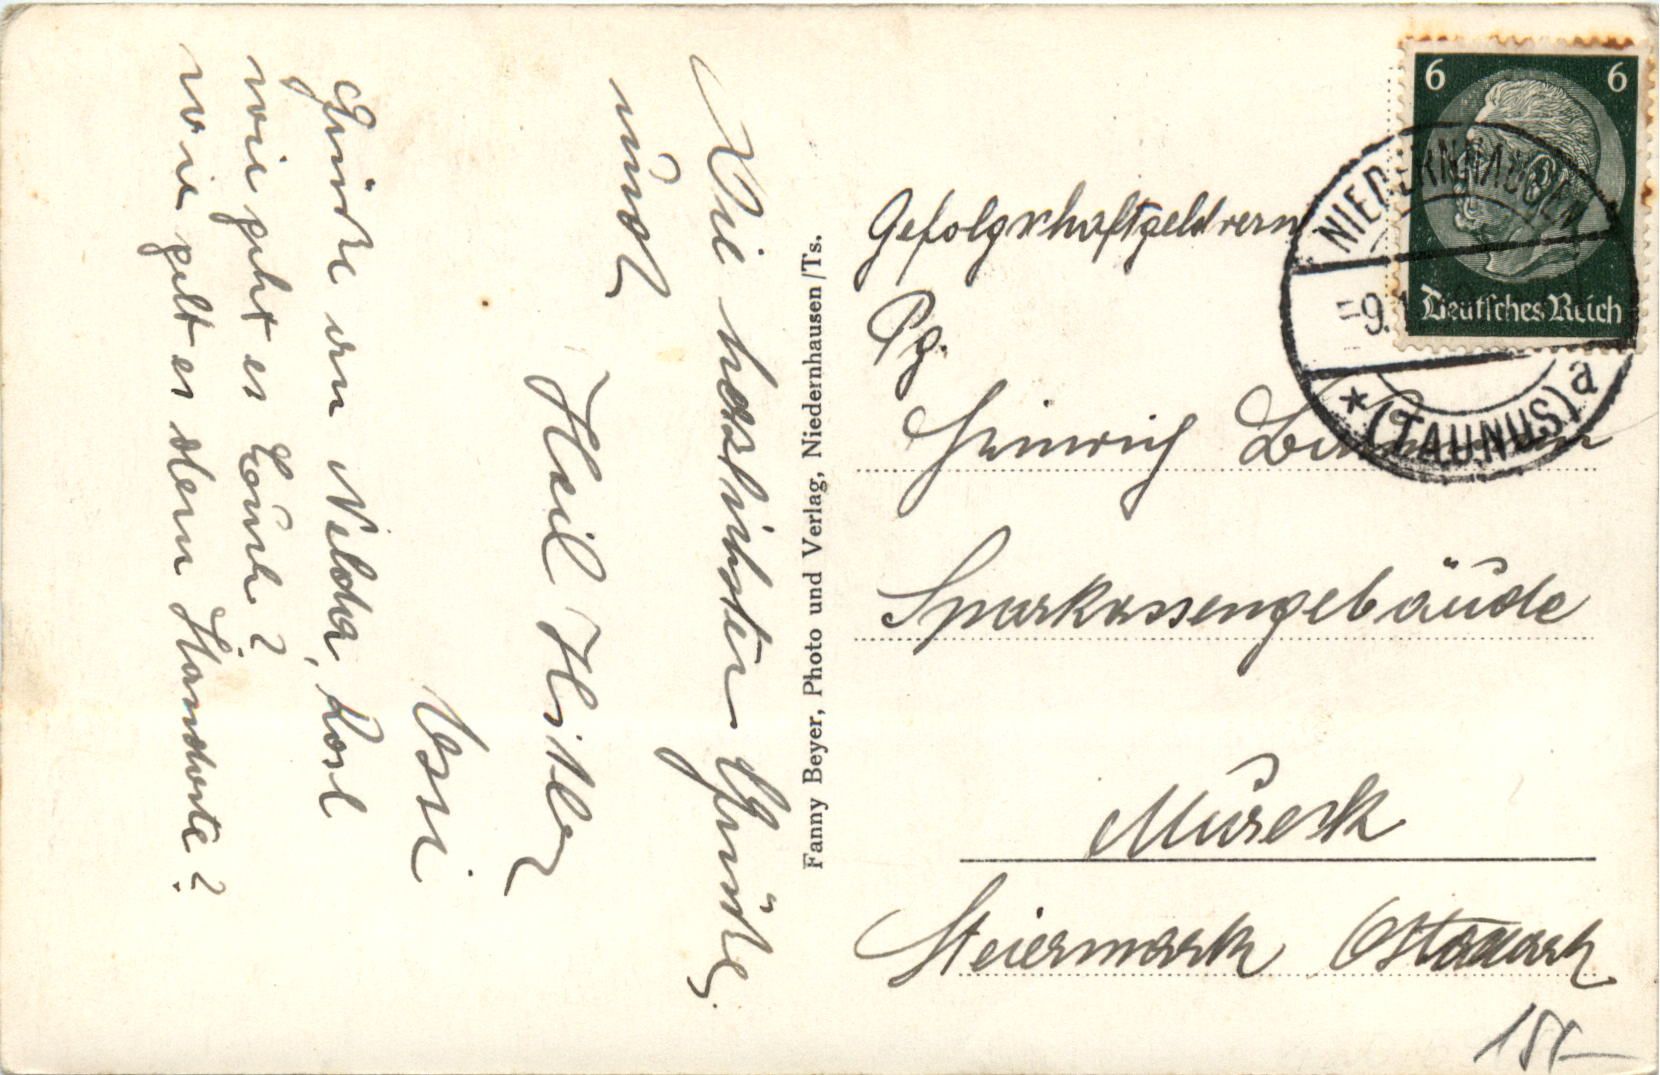 Die herzlichsten Grüße,
und
Heil Hitler
Ossi
Grüße an Nelda, Rosl
wie geht es
wie geht es dem Standorte?
Fanny Beyer, Photo und Verlag, Niedernhausen /Ts.
6 6
Deutsches Reich
NIEDERNHAUSEN
-9.
* (TAUNUS) a
Pg.
Heinrich
Sparkassengebäude
Mureck
Steiermark Ostmark